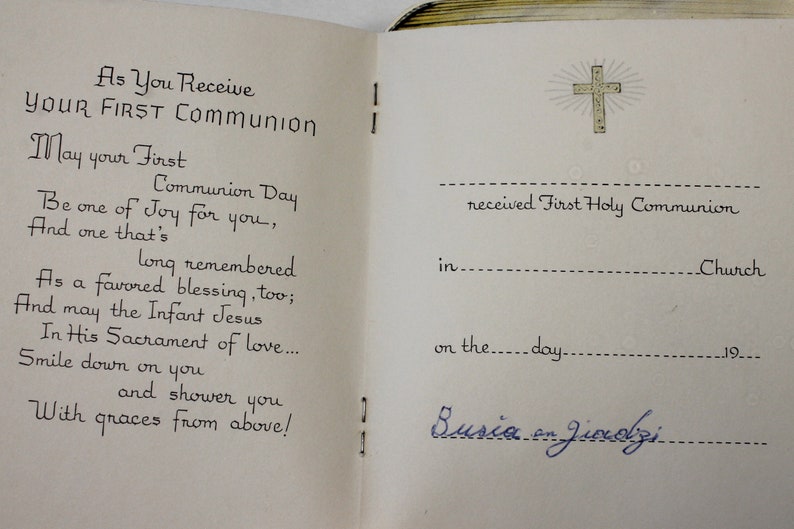 As You Receive
YOUR FIRST COMMUNION
May your First
Communion Day
Be one of Joy for you,
And one that's
long remembered
As a favored blessing, too;
And may the Infant Jesus
In His Sacrament of love...
Smile down on you
and shower you
With graces from above!
received First Holy Communion
in Church
on the day 19
Busia an Jiadzi